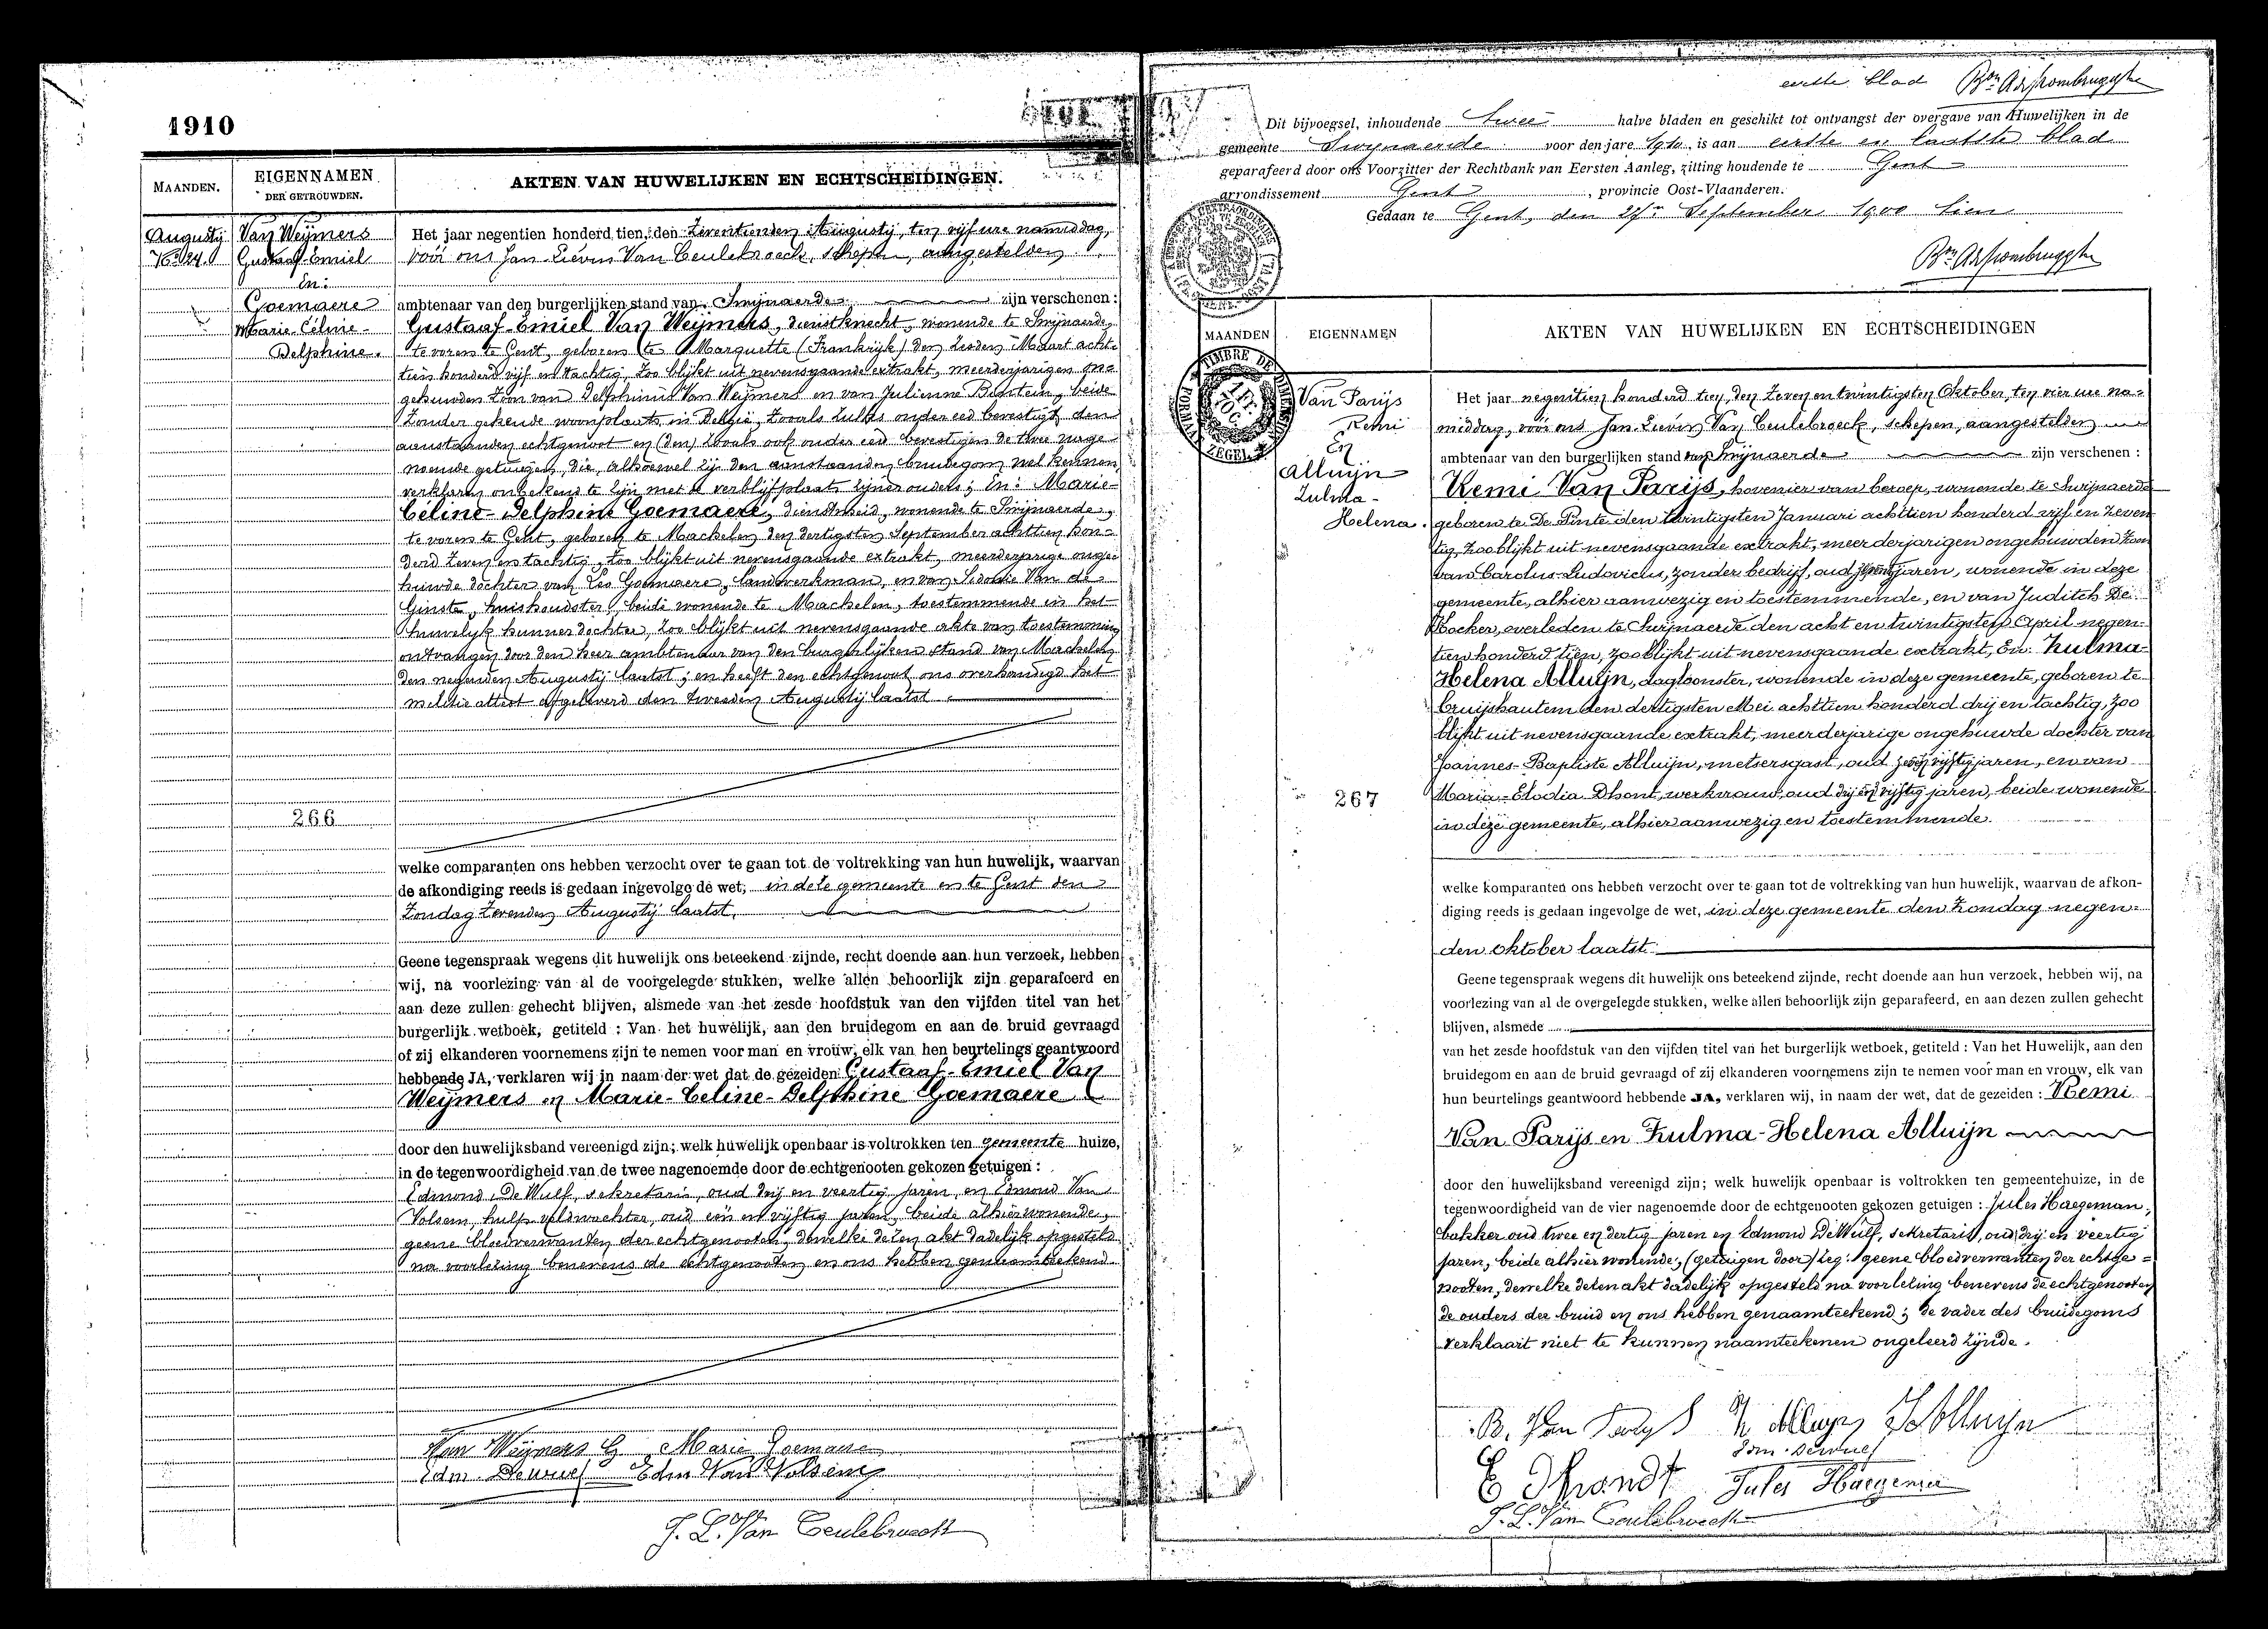 1910
MAANDEN.
EIGENNAMEN
DER GETROUWDEN.
AKTEN VAN HUWELIJKEN EN ECHTSCHEIDINGEN.
Augustij
No 24.
Van Weÿmers
Gustaaf-Emiel
En:
Goemaere
Marie-Céline-
Delphine.
266
Het jaar negentien honderd tien, den zeventienden Augustij, ten vijf ure namiddag,
vóór ons Jan-Liévin Van Ceulebroeck, schepen, aangestelden
ambtenaar van den burgerlijken stand van Swijnaerde zijn verschenen:
Gustaaf-Emiel Van Weÿmers, dienstknecht, wonende te Swijnaerde,
te vorens te Gent, geboren te Marquette (Frankrijk) den zesden Maart acht-
tien honderd vijf en tachtig, zoo blijkt uit nevensgaande extrakt, meerderjarigen on-
gehuwden zoon van Delphinus Van Weÿmers en van Julienne, beide
zonder gekende woonplaats in België, zooals zulks onder eed bevestigt den
aanstaanden echtgenoot en (den) zooals ook onder eed bevestigen de twee nage-
noemde getuigen, die, alhoewel zij den aanstaanden bruidegom wel kennen,
verklaren onbekend te zijn met de verblijfplaats zijner ouders; En: Marie-
Céline-Delphine Goemaere, dienstmeid, wonende te Swijnaerde,
te vorens te Gent, geboren te Machelen den dertigsten September achttien hon-
derd zeven en tachtig, zoo blijkt uit nevensgaande extrakt, meerderjarige onge-
huwde dochter van Leo Goemaere, landwerkman, en van Sidonie Van de
Ginste, huishoudster, beide wonende te Machelen, toestemmende in het
huwelijk hunner dochter, zoo blijkt uit nevensgaande akte van toestemming
ontvangen door den heer ambtenaar van den burgerlijken stand van Machelen
den negenden Augustij laatst; en heeft den echtgenoot ons overhandigd het
militie attest afgeleverd den tweeden Augustij laatst
welke comparanten ons hebben verzocht over te gaan tot de voltrekking van hun huwelijk, waarvan
de afkondiging reeds is gedaan ingevolge de wet, in deze gemeente en te Gent den
Zondag zevenden Augustij laatst.
Geene tegenspraak wegens dit huwelijk ons beteekend zijnde, recht doende aan hun verzoek, hebben
wij, na voorlezing van al de voorgelegde stukken, welke allen behoorlijk zijn geparafeerd en
aan deze zullen gehecht blijven, alsmede van het zesde hoofdstuk van den vijfden titel van het
burgerlijk wetboek, getiteld: Van het huwelijk, aan den bruidegom en aan de bruid gevraagd
of zij elkanderen voornemens zijn te nemen voor man en vrouw, elk van hen beurtelings geantwoord
hebbende JA, verklaren wij in naam der wet dat de gezeiden Gustaaf-Emiel Van
Weÿmers en Marie-Celine-Delphine Goemaere
door den huwelijksband vereenigd zijn; welk huwelijk openbaar is voltrokken ten gemeente huize,
in de tegenwoordigheid van de twee nagenoemde door de echtgenooten gekozen getuigen:
Edmond De Wulf, sekretaris, oud drij en veertig jaren, en Edmond Van
Volsem, hulp veldwachter, oud één en vijftig jaren, beide alhier wonende,
geene bloedverwanten der echtgenooten, dewelke dezen akt dadelijk opgesteld
na voorlezing benevens de echtgenooten en ons hebben genaamteekend.
Van Weÿmers G Marie Goemaere
Edm. Dewulf Edm Van Volsem
J. L. Van Ceulebroeck
eerste blad
Dit bijvoegsel, inhoudende twee halve bladen en geschikt tot ontvangst der overgave van Huwelijken in de
gemeente Swynaerde voor den jare 1910, is aan eerste en laatste blad
geparafeerd door ons Voorzitter der Rechtbank van Eersten Aanleg, zitting houdende te Gent
arrondissement Gent, provincie Oost-Vlaanderen.
Gedaan te Gent, den 27n September 1900 tien
MAANDEN
EIGENNAMEN
AKTEN VAN HUWELIJKEN EN ECHTSCHEIDINGEN
TIMBRE DE DIMENSION
ZEGEL
Van Parijs
Remi
En
Alluijn
Zulma-
Helena.
267
Het jaar negentien honderd tien, den zeven en twintigsten Oktober, ten vier ure na-
middag, vóór ons Jan-Lievin Van Ceulebroeck, schepen, aangestelden
ambtenaar van den burgerlijken stand van Swijnaerde zijn verschenen:
Remi Van Parijs, hovenier van beroep, wonende te Swijnaerde
geboren te De Pinte den twintigsten Januari achttien honderd vijf en zeven
tig, zoo blijkt uit nevensgaande extrakt, meerderjarigen ongehuwden zoon
van Carolus-Ludovicus, zonder bedrijf, oud jaren, wonende in deze
gemeente, alhier aanwezig en toestemmende, en van Judith De
Kocker, overleden te Swijnaerde den acht en twintigsten April negen-
tien honderd tien, zoo blijkt uit nevensgaande extrakt, En: Zulma-
Helena Alluijn, dagloonster, wonende in deze gemeente, geboren te
Cruijshautem den dertigsten Mei achttien honderd drij en tachtig, zoo
blijkt uit nevensgaande extrakt, meerderjarige ongehuwde dochter van
Joannes-Baptiste Alluijn, metsersgast, oud zeven vijftig jaren, en van
Maria-Elodia Dhont, werkvrouw, oud drij en vijftig jaren, beide wonende
in deze gemeente, alhier aanwezig en toestemmende.
welke komparanten ons hebben verzocht over te gaan tot de voltrekking van hun huwelijk, waarvan de afkon-
diging reeds is gedaan ingevolge de wet, in deze gemeente den Zondag negen-
den Oktober laatst.
Geene tegenspraak wegens dit huwelijk ons beteekend zijnde, recht doende aan hun verzoek, hebben wij, na
voorlezing van al de overgelegde stukken, welke allen behoorlijk zijn geparafeerd, en aan dezen zullen gehecht
blijven, alsmede
van het zesde hoofdstuk van den vijfden titel van het burgerlijk wetboek, getiteld: Van het Huwelijk, aan den
bruidegom en aan de bruid gevraagd of zij elkanderen voornemens zijn te nemen voor man en vrouw, elk van
hun beurtelings geantwoord hebbende JA, verklaren wij, in naam der wet, dat de gezeiden: Remi
Van Parijs en Zulma-Helena Alluijn
door den huwelijksband vereenigd zijn; welk huwelijk openbaar is voltrokken ten gemeentehuize, in de
tegenwoordigheid van de vier nagenoemde door de echtgenooten gekozen getuigen: Jules Haegeman,
bakker oud twee en dertig jaren en Edmond De Wulf, sekretaris, oud drij en veertig
jaren, beide alhier wonende, (getuigen door) zeg: geene bloedverwanten der echtge-
nooten, dewelke dezen akt dadelijk opgesteld na voorlezing benevens de echtgenooten
de ouders der bruid en ons hebben genaamteekend; de vader des bruidegoms
verklaart niet te kunnen naamteekenen ongeleerd zijnde.
Edm. Dewulf
Jules Haegeman
J. L. Van Ceulebroeck